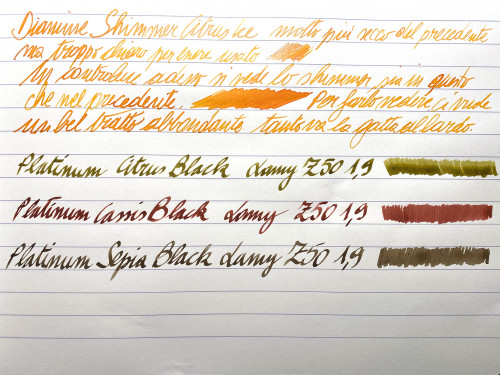 Diamine Shimmer Citrus Ice molto più ricco del precedente
ma troppo chiaro per essere usato
In controluce adesso si vede lo shimmer, sia in questo
che nel precedente. Per farlo vedere ci vuole
un bel tratto abbondante tanto va la gatta al lardo.
Platinum Citrus Black Lamy Z50 1,9
Platinum Cassis Black Lamy Z50 1,9
Platinum Sepia Black Lamy Z50 1,9